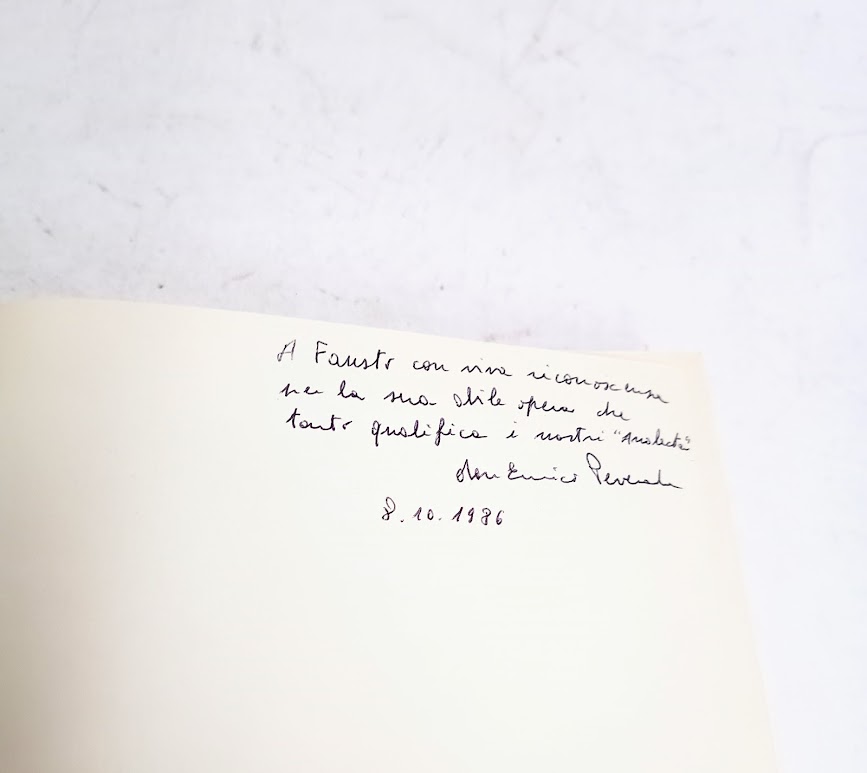 A Fausto con viva riconoscenza
per la sua abile opera che
tanto qualifica i nostri "Analecta"
don Enrico Peverada
8.10.1986